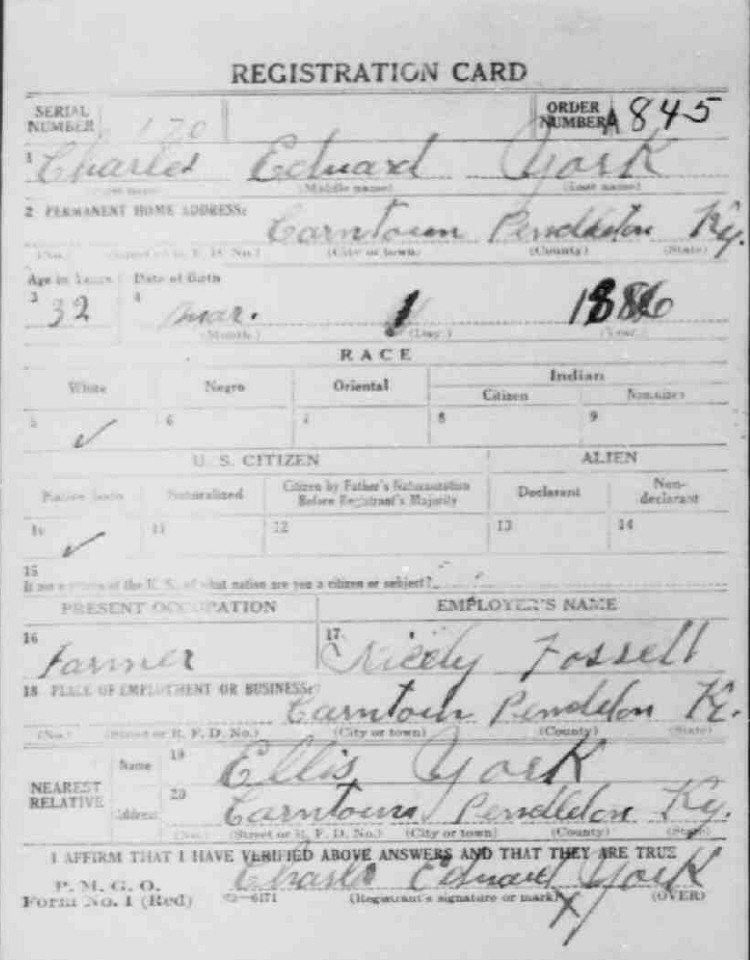 REGISTRATION CARD
SERIAL NUMBER 170 ORDER NUMBER A 845
1 Charles Edward York
(First name) (Middle name) (Last name)
2 PERMANENT HOME ADDRESS:
Carntown Pendleton Ky.
(No.) (Street or R. F. D. No.) (City or town) (County) (State)
Age in Years Date of Birth
3 32 4 Mar. 1 1886
(Month.) (Day.) (Year.)
RACE
White Negro Oriental Indian
Citizen Noncitizen
5 ✓ 6 7 8 9
U. S. CITIZEN ALIEN
Native born Naturalized Citizen by Father's Naturalization Before Registrant's Majority Declarant Non-declarant
10 ✓ 11 12 13 14
15
If not a citizen of the U. S. of what nation are you a citizen or subject?
PRESENT OCCUPATION EMPLOYER'S NAME
16 Farmer 17 Fossell
18 PLACE OF EMPLOYMENT OR BUSINESS:
Carntown Pendleton Ky.
(No.) (Street or R. F. D. No.) (City or town) (County) (State)
NEAREST RELATIVE
Name 19 Ellis York
Address 20 Carntown Pendleton Ky.
(No.) (Street or R. F. D. No.) (City or town) (County) (State)
I AFFIRM THAT I HAVE VERIFIED ABOVE ANSWERS AND THAT THEY ARE TRUE
P. M. G. O.
Form No. 1 (Red) Charles Edward York X
(Registrant's signature or mark) (OVER)